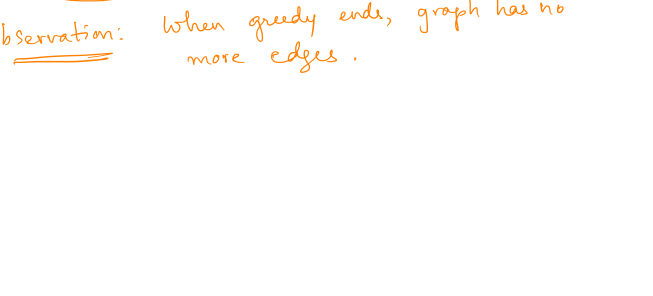 bservation: When greedy ends, graph has no
more edges.